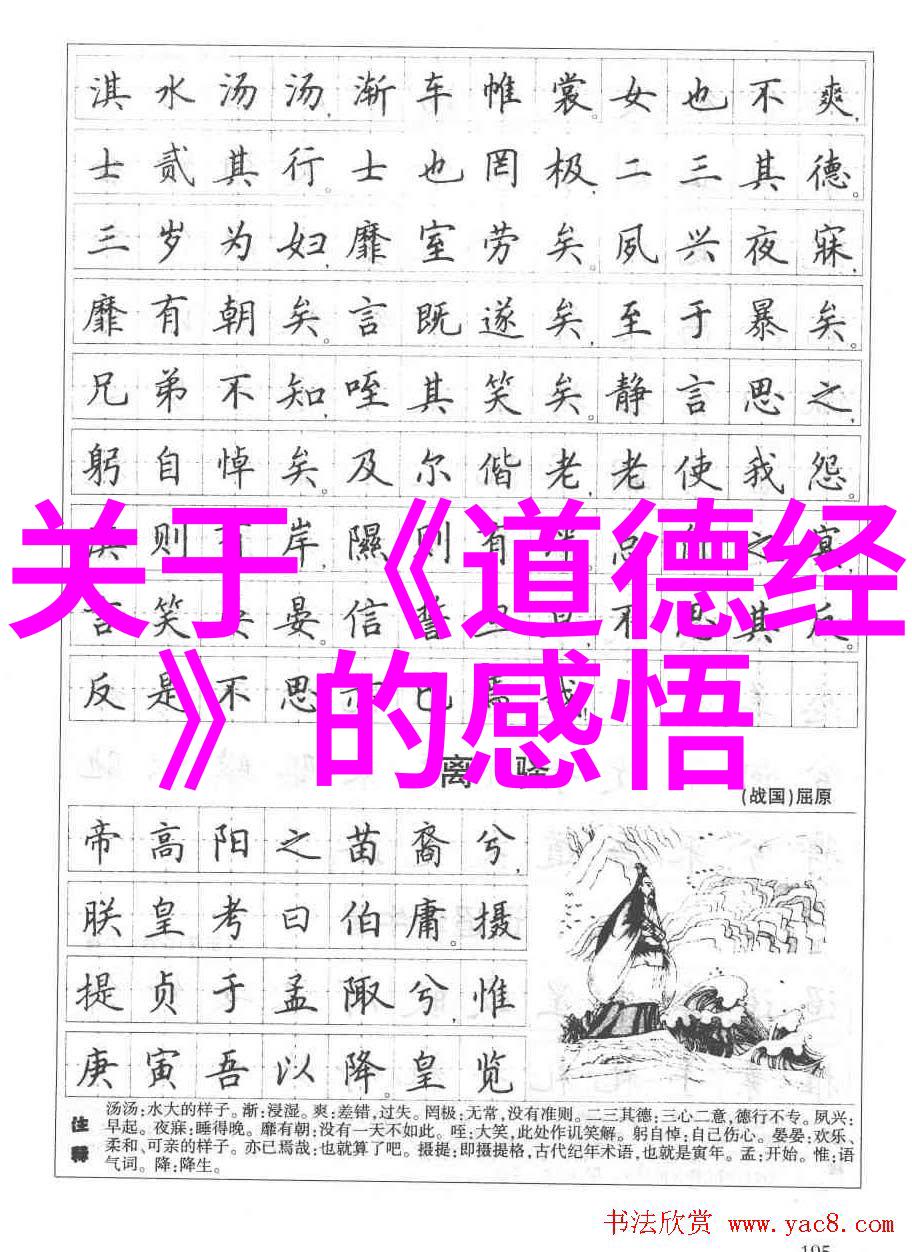 淇水汤汤,渐车帷裳。女也不爽,
士贰其行。士也罔极,二三其德。
三岁为妇,靡室劳矣。夙兴夜寐,
靡有朝矣。言既遂矣,至于暴矣。
兄弟不知,咥其笑矣。静言思之,
躬自悼矣。及尔偕老,老使我怨。
则 岸,隰则有
关于《道德经
言笑 晏。信誓 不思其反。
》的感悟
反是不思
离骚
(战国)屈原
帝高阳之苗裔兮,
朕皇考曰伯庸。摄
提贞于孟陬兮,惟
庚寅吾以降。皇览
注释
汤汤:水大的样子。渐:浸湿。爽:差错,过失。罔极:无常,没有准则。二三其德:三心二意,德行不专。夙兴:
早起。夜寐:睡得晚。靡有朝:没有一天不如此。咥:大笑,此处作讥笑解。躬自悼:自己伤心。晏晏:欢乐、
柔和、可亲的样子。亦已焉哉:也就算了吧。摄提:即摄提格,古代纪年术语,也就是寅年。孟:开始。惟:语
气词。降:降生。
书法欣赏 www.yac8.com
195